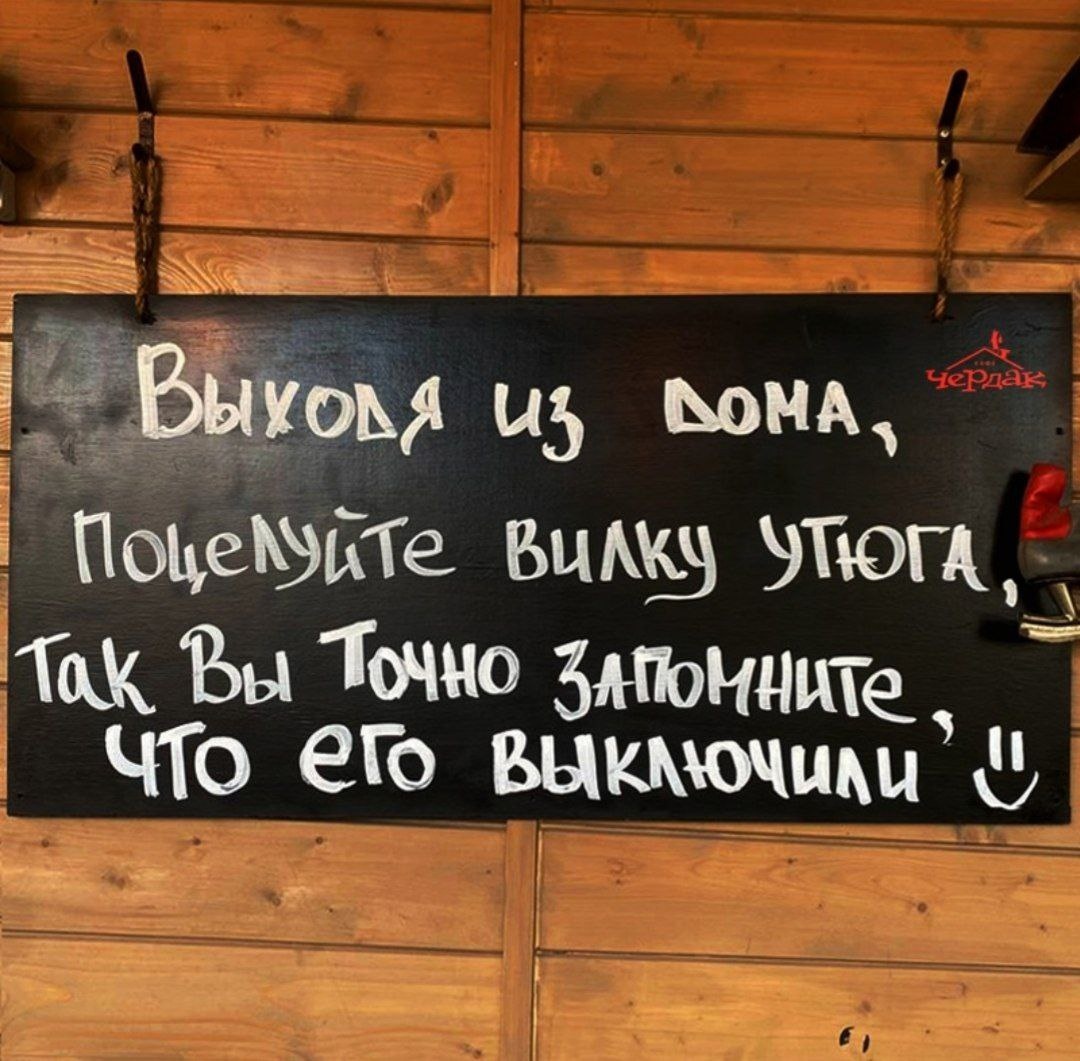 Выходя из дома,
кафе
Чердак
Поцелуйте вилку утюга,
Так Вы Точно Запомните,
что его выключили